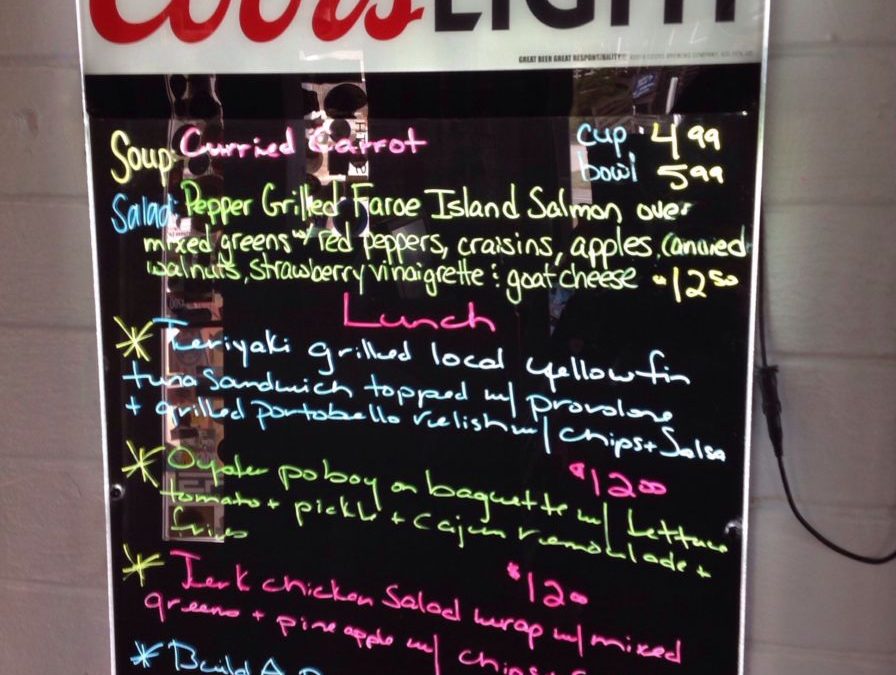 Coors LIGHT
GREAT BEER GREAT RESPONSIBILITY
Soup: Curried Carrot cup 4.99
bowl 5.99
Salad: Pepper Grilled Faroe Island Salmon over
mixed greens w/ red peppers, craisins, apples,
walnuts, strawberry vinaigrette & goat cheese $12.50
Lunch
* Teriyaki grilled local yellowfin
tuna sandwich topped w/ provolone
+ grilled portobello relish w/ chips + Salsa
$12.00
* Oyster poboy on baguette w/ lettuce
tomato + pickle + cajun remoulade +
fries
$12.00
* Jerk chicken Salad wrap w/ mixed
greens + pineapple w/ chips +
* Build A